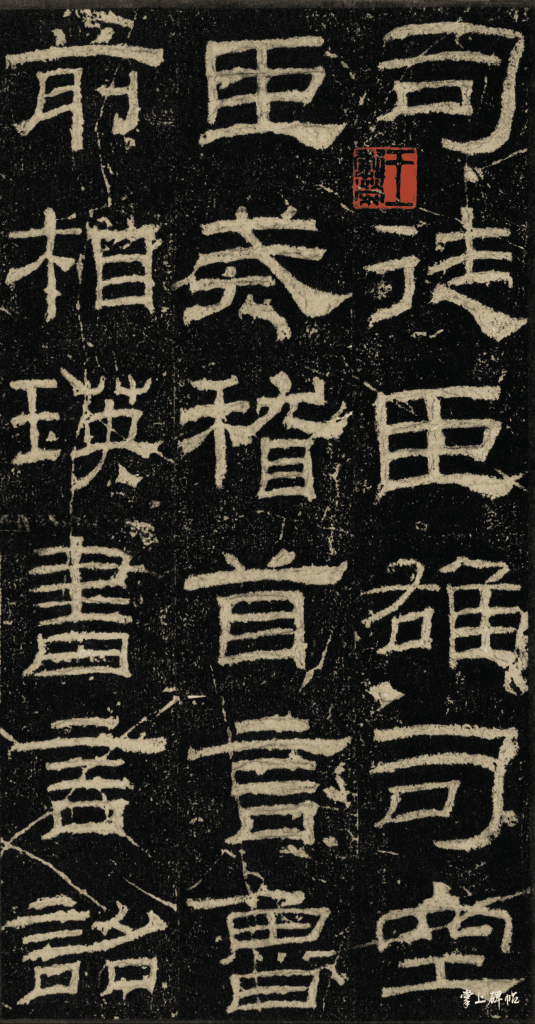 司徒臣雄司空
臣戒稽首言魯
前相瑛書言詔
掌上碑帖